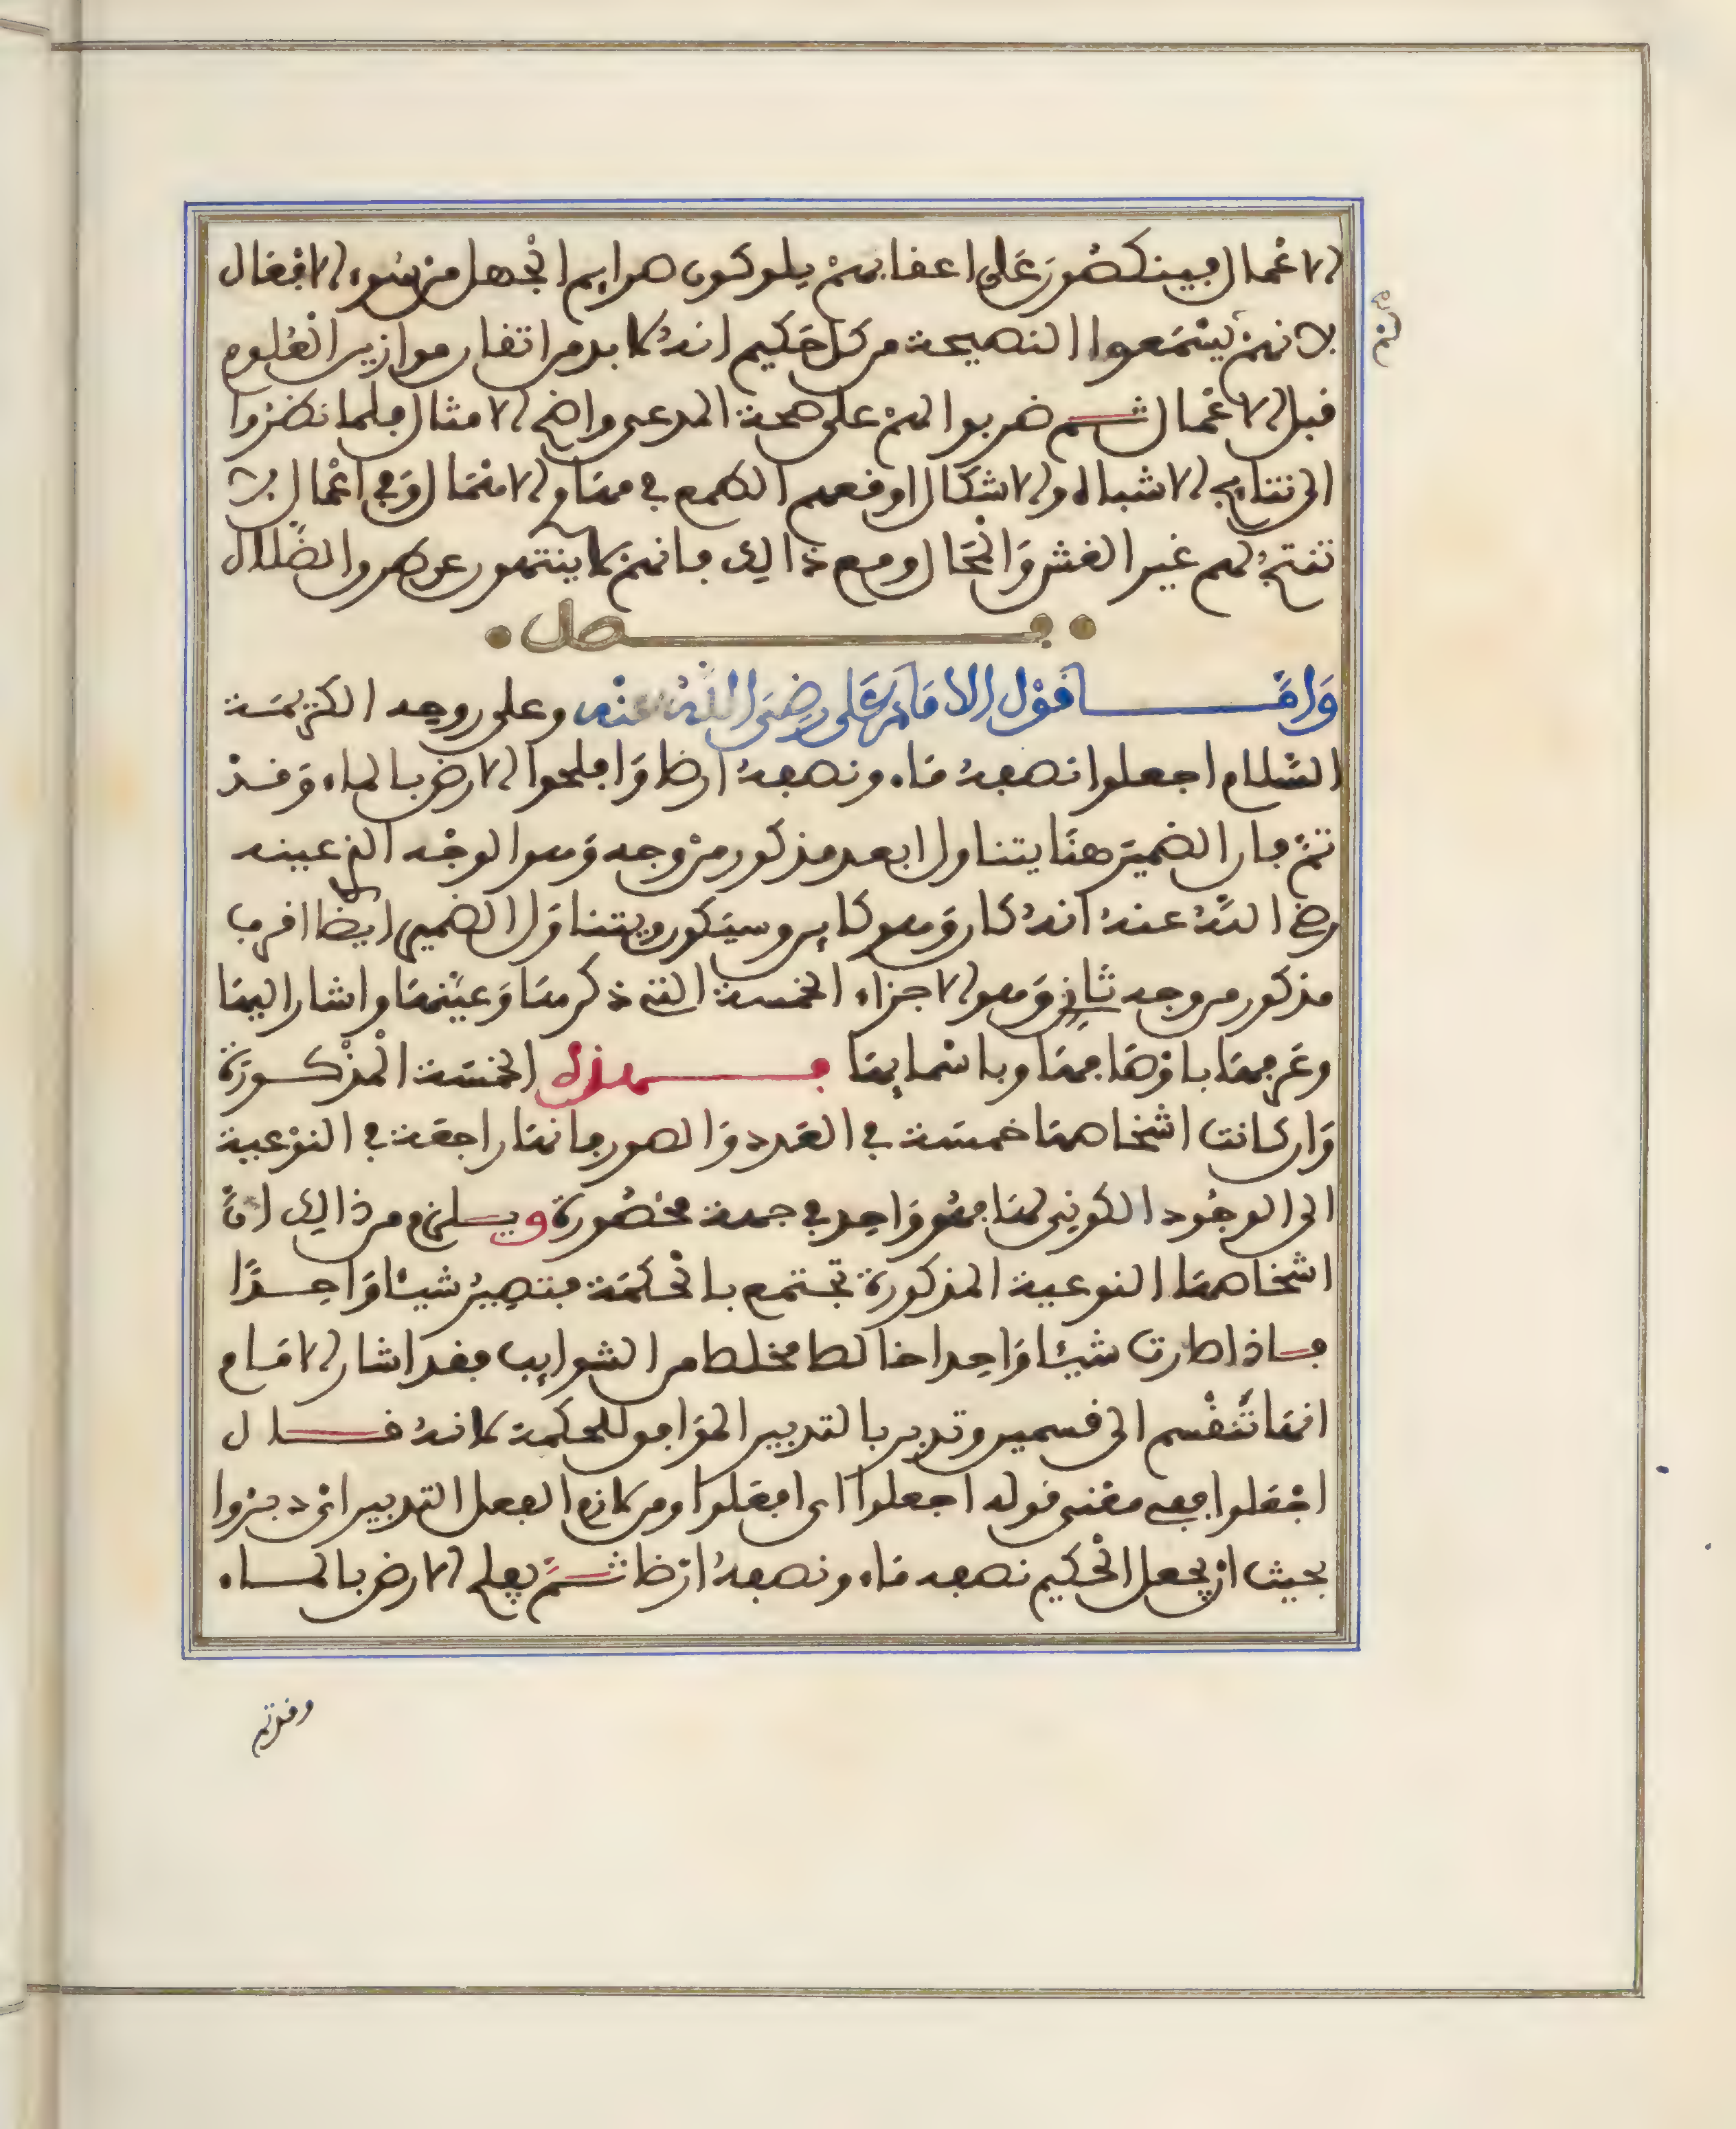 الاعمال فينكصون على اعقابهم يلوكون هوايم الجهل من سوء الافعال
لانهم لم يسمعوا النصيحة من كل حكيم انه لا بد من اتقان موازين العلوم
قبل الاعمال ثم ضربوا لهم على صحة المدعى واضح الامثال فلما نظروا
الى نتايج الاشباه والاشكال اوقعهم الطمع في مهاو الامتحال وفي اعمال لا
تنتج لهم غير الغش والمحال ومع ذالك فانهم لا ينتهون عن طرو الضلال
فصل
وَامَّا قوْل الامَام على رضى اللهُ عنه وعلى روحه الكريمة
السلام اجعلوا نصفهُ ماء ونصفهُ ارضا وَافلحوا الارض بالماء وَقدْ
تمّ فان الضمير هنا يتناول ابعد مذكور من وجه وَهو الوجْه الذي عينه
رضي اللهُ عنه انهُ كان وَهو كاين وسيكون ويتناوَل الضمير ايضا اقرب
مذكور من وجه ثانٍ وَهو الاجزاء الخمسة التي ذكرها وَعيّنها واشار اليها
وعرفها باوْصافها وباسْمايها فهذه الخمسَة المذْكورَة
وَان كانت اشخاصها خمسَة في العَدد وَالصور فانها راجعَة في النوْعية
الى الوجُود الكوني لها فهُو وَاحِد في جهة محْصُورة ويلزم من ذالك انَّ
اشخاصها النوعية المذكورة تجتمع بالحكمَة فتصِيرُ شيئا وَاحدًا
فاذا صارت شيئا وَاحِدا خالصا مخلصا من الشوايب فقد اشار الامام
انها تُنقسم الى قسمين وتدبر بالتدبير الموَافق للحكمة لانهُ قال
اجْعَلوا ففي معْنى قوله اجعلوا اى افعَلوا ومن لازم الفعل التدبير اىْ دبرْوا
بحيث ان يجعل الحْكيم نصفه ماء ونصفهُ ارْضا ثمَّ يفلح الارض بالماء
وقد تم